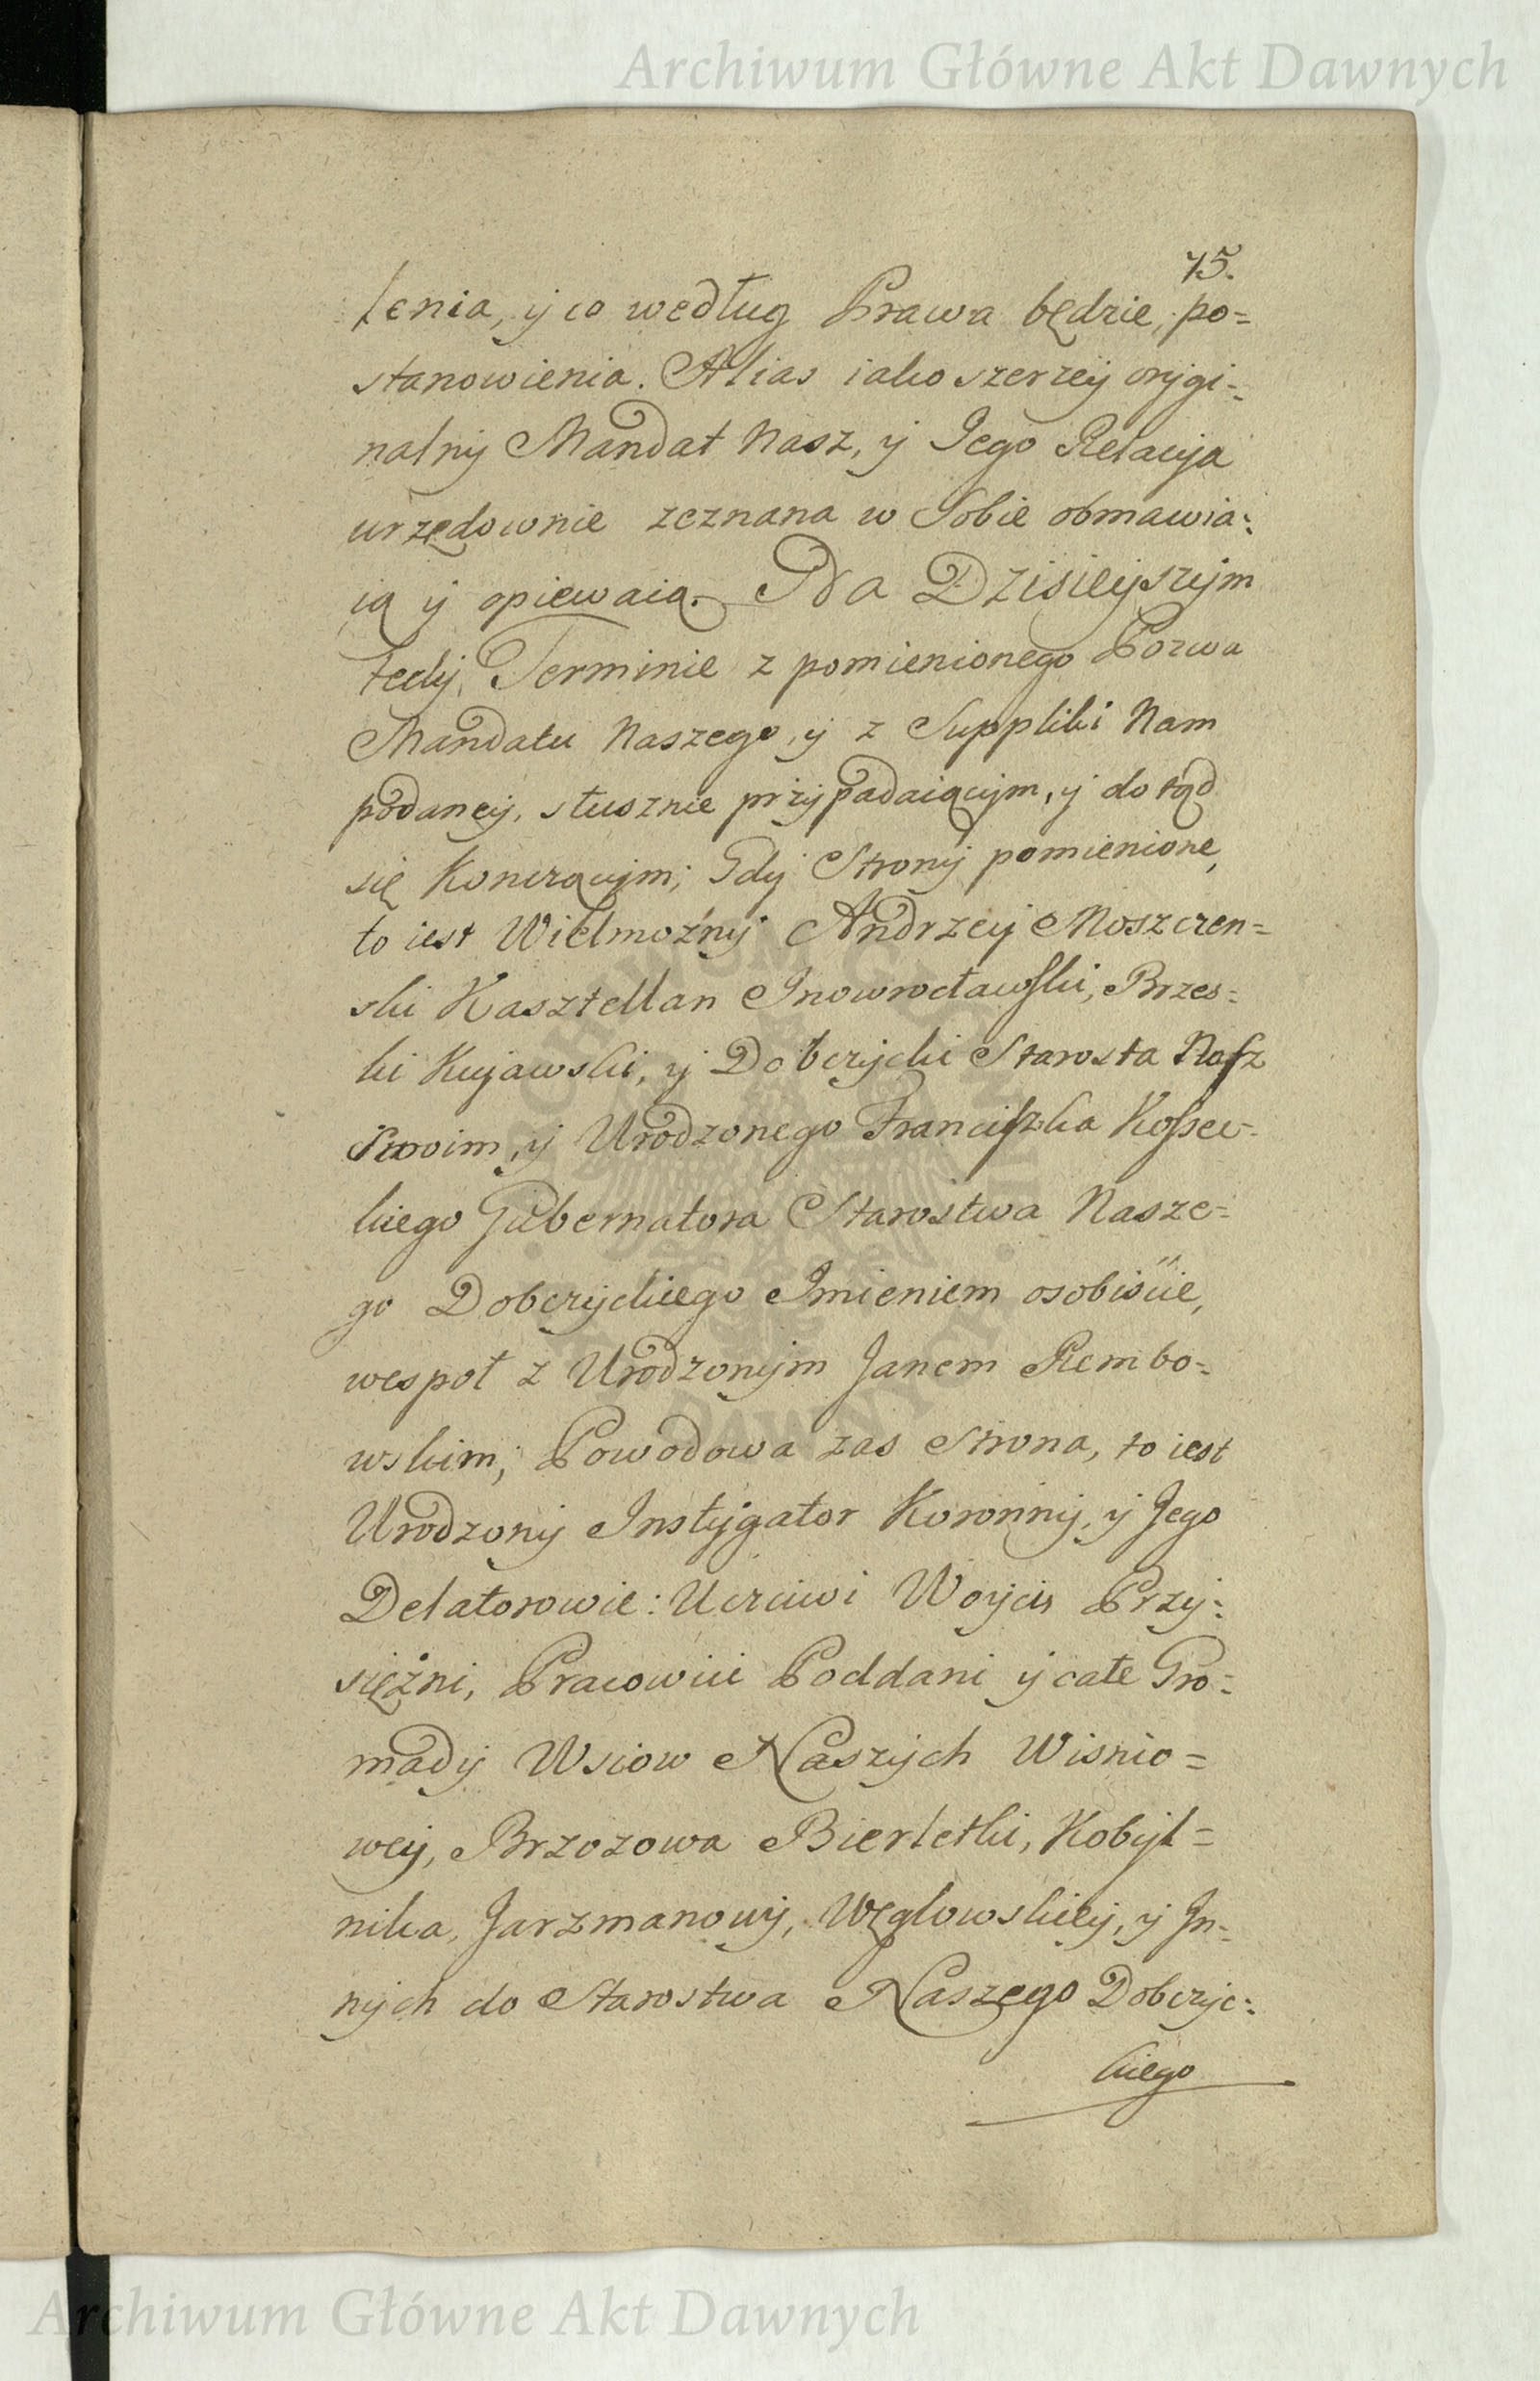 Archiwum Główne Akt Dawnych
75.
lenia, y co według Prawa będzie, po=
stanowienia. Alias iako szerzey orygi=
nalny Mandat Nasz, y Jego Relacya
urzędownie zeznana w Sobie obmawia=
ią y opiewaią. Na Dzisieyszym
tedy, Terminie z pomienionego Pozwu
Mandatu Naszego, y z Suppliki Nam
podaney, słusznie przypadaiącym, y dotąd
się Konczącym; Gdy Strony pomienione,
to iest Wielmożny Andrzey Moszczen=
ski Kasztellan Inowrocławski, Brzes=
ki Kujawski, y Dobczycki Starosta Nasz
Swoim, y Urodzonego Franciszka Kossec=
kiego Gubernatora Starostwa Nasze=
go Dobczyckiego Imieniem osobiście,
wespoł z Urodzonym Janem Rembo=
wskim; Powodowa zas Strona, to iest
Urodzony Instygator Koronny, y Jego
Delatorowie: Uczciwi Woyci Przy=
siężni, Pracowici Poddani y całe Gro=
mady Wsiow Naszych Wisnio=
wey, Brzozowa Bierletki, Kobyl=
nika, Jarzmanowy, Węglowskiey, y In=
nych do Starostwa Naszego Dobczyc=
kiego
Archiwum Główne Akt Dawnych